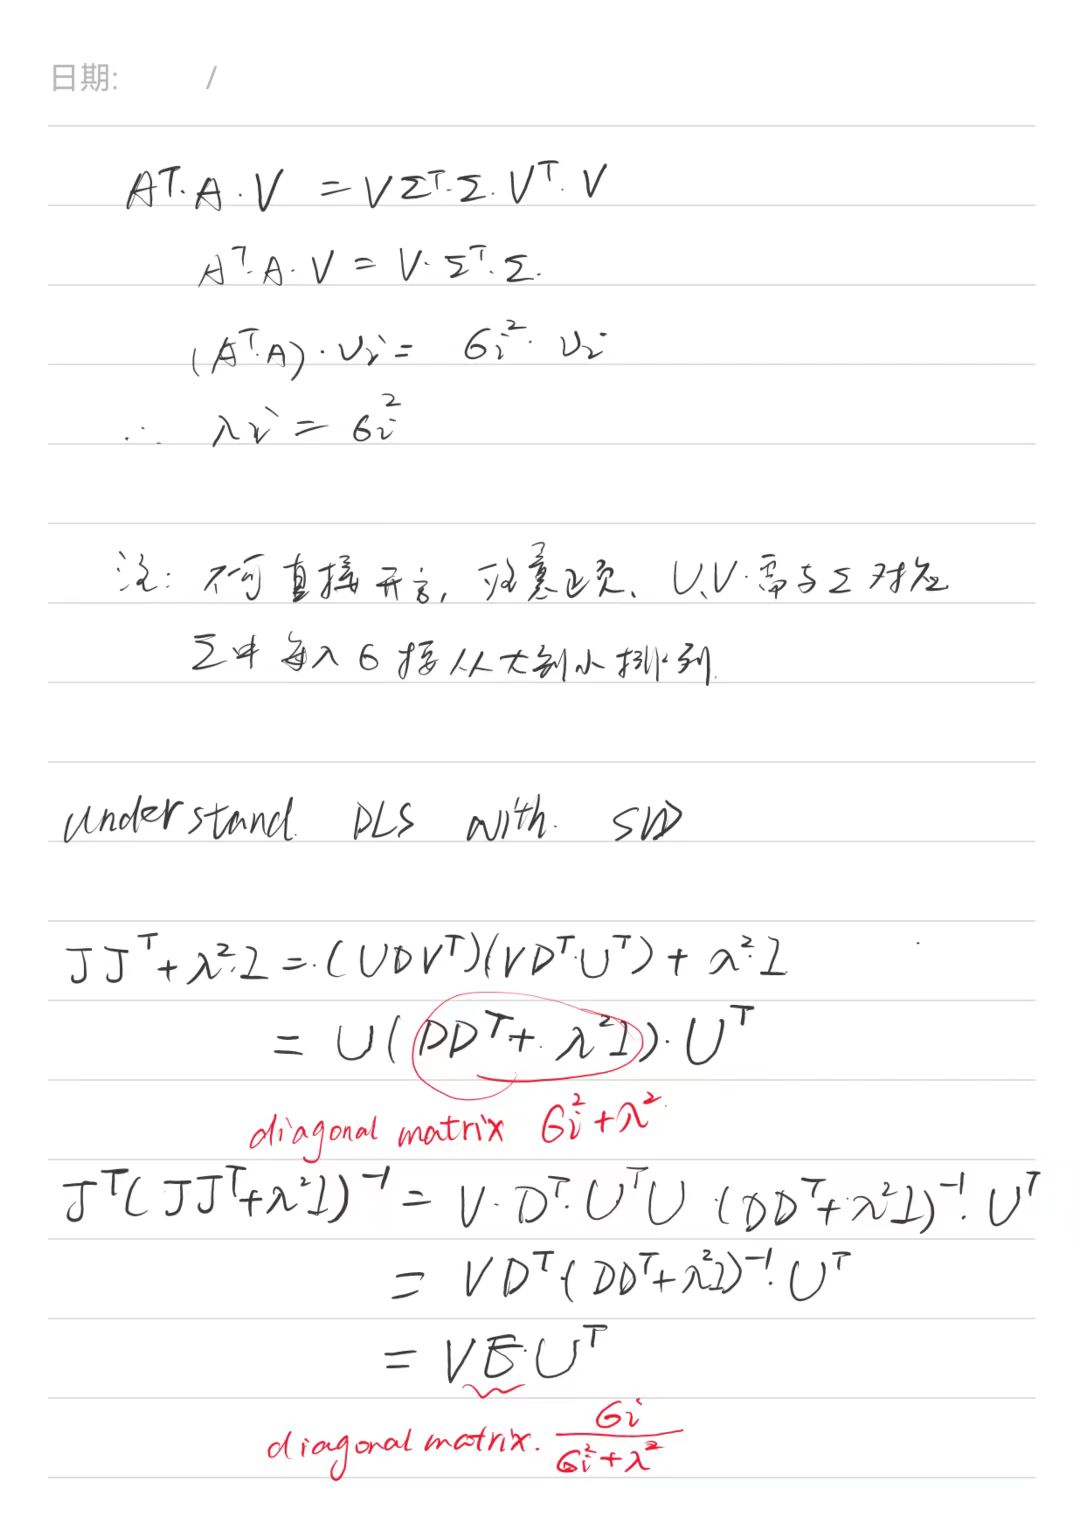 日期: /
Aᵀ·A·V = VΣᵀ·Σ·Vᵀ·V
Aᵀ·A·V = V·Σᵀ·Σ.
(Aᵀ·A)·υi = 6i²·υi
∴ λi = 6i²
注: 不可直接开方, 注意正负、U、V·需与Σ对应
Σ中每个6按从大到小排列.
understand DLS with SVD
JJᵀ+λ²·I = (UDVᵀ)(VDᵀ·Uᵀ) + λ²I
= U(DDᵀ+λ²I)·Uᵀ
diagonal matrix 6i²+λ²
Jᵀ(JJᵀ+λ²I)⁻¹ = V·Dᵀ·UᵀU (DDᵀ+λ²I)⁻¹·Uᵀ
= VDᵀ(DDᵀ+λ²I)⁻¹·Uᵀ
= VE·Uᵀ
diagonal matrix. 6i/(6i²+λ²)